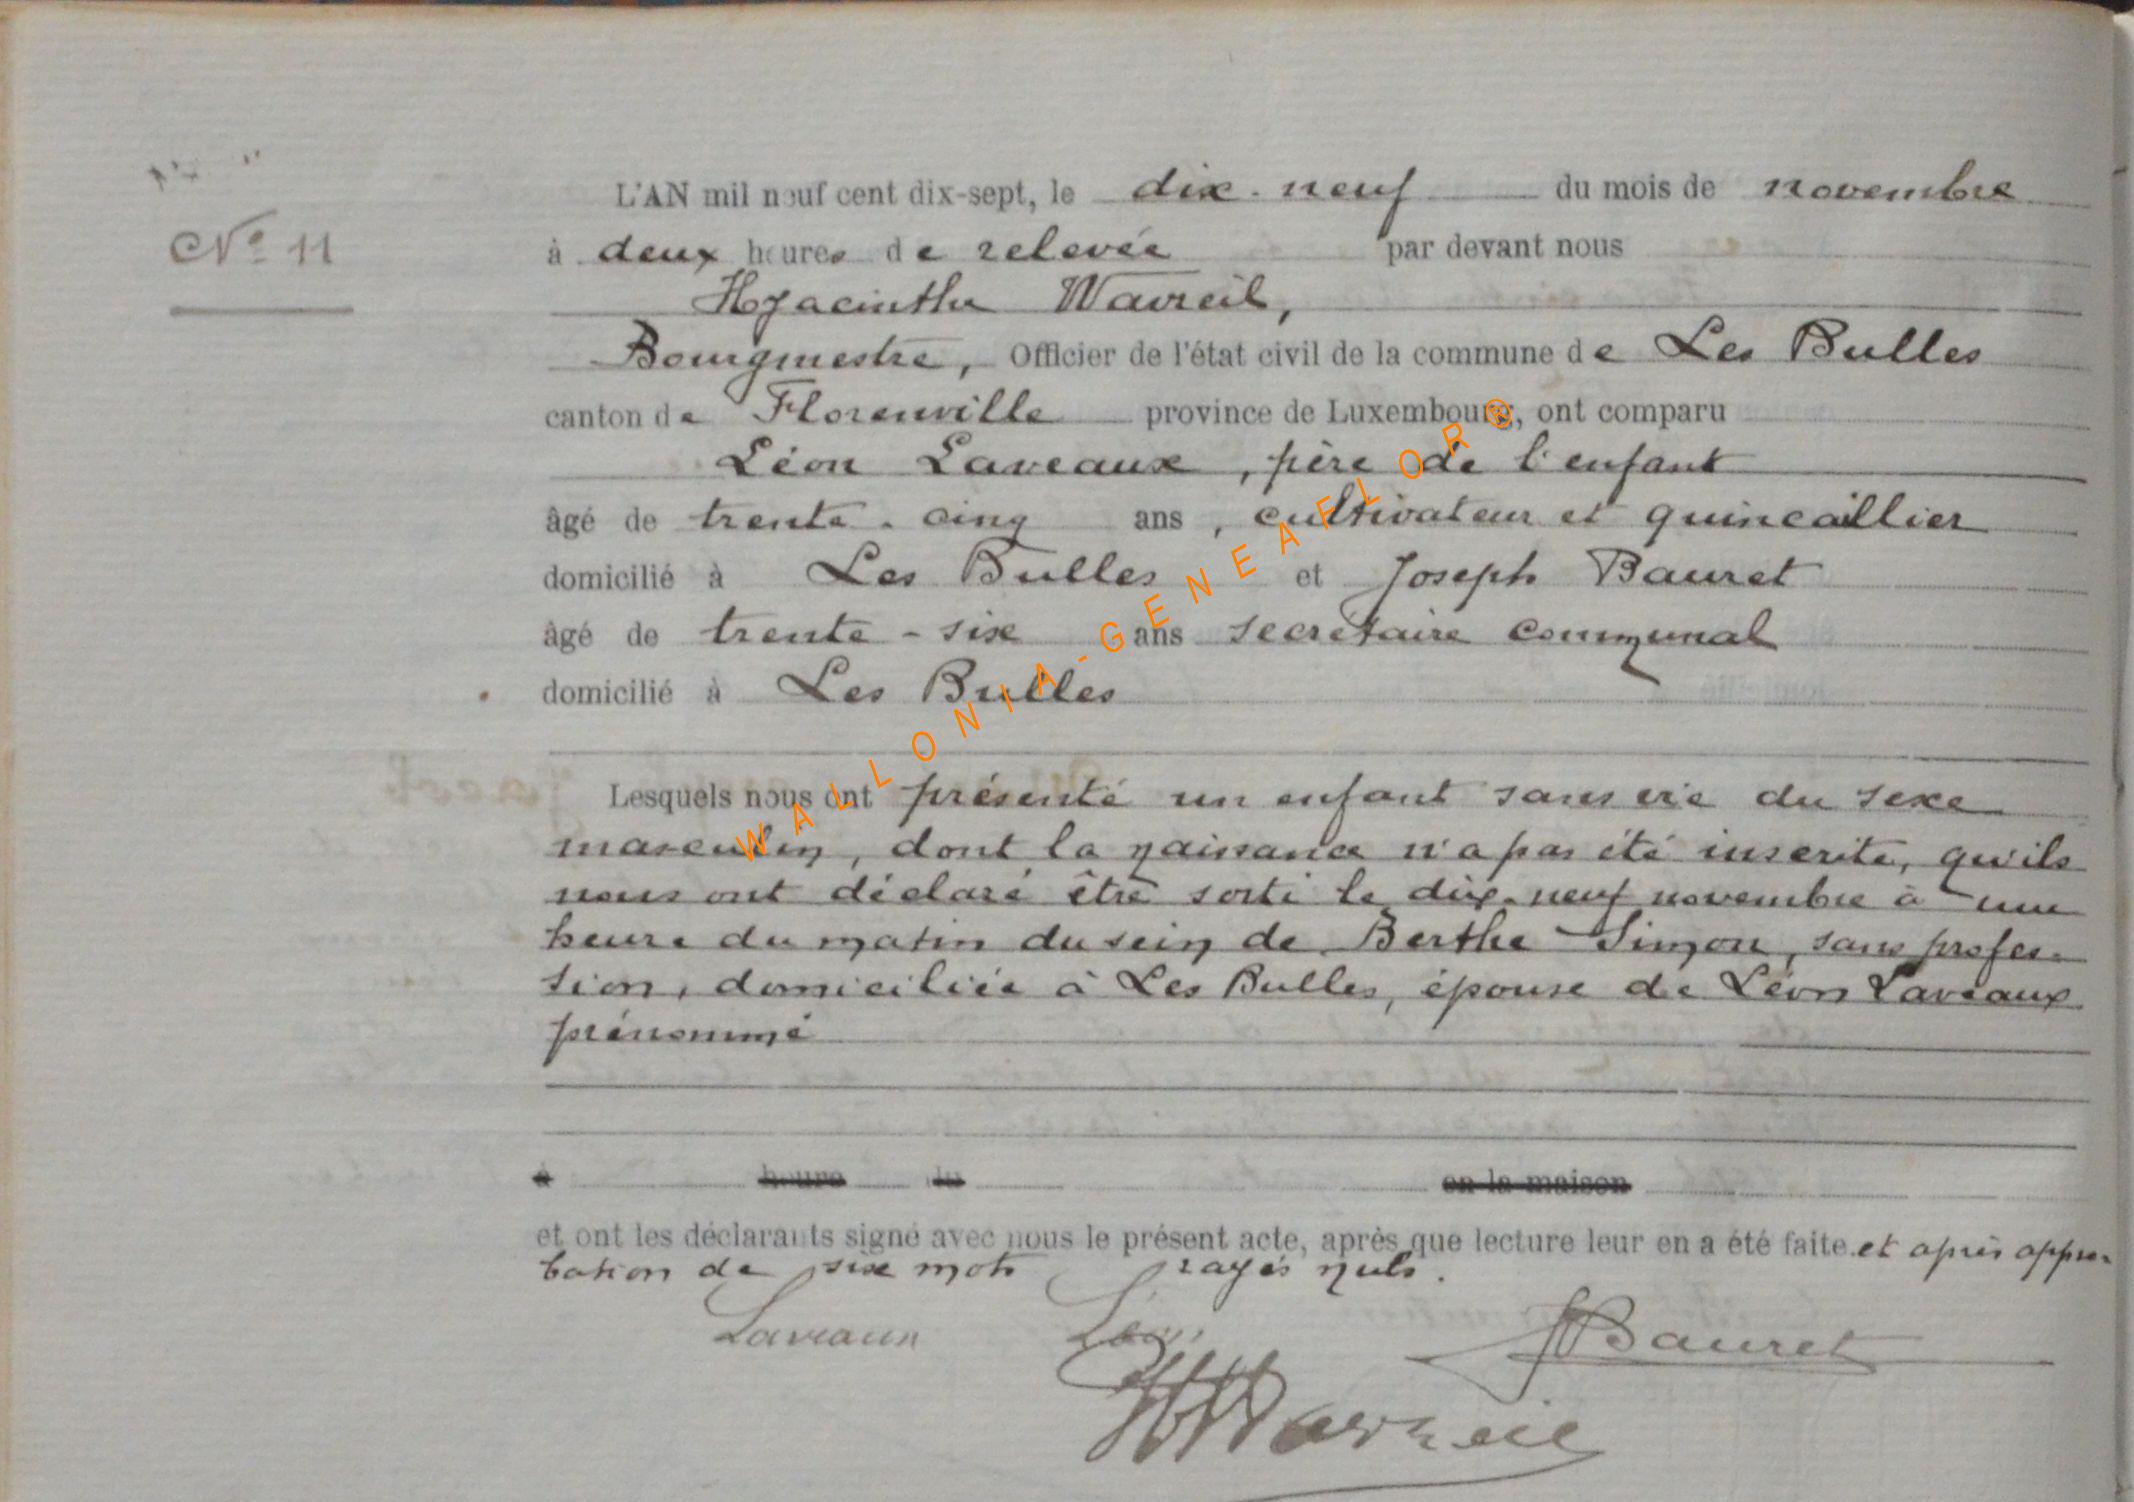 N° 11
L'AN mil neuf cent dix-sept, le dix-neuf du mois de novembre
à deux heures de relevée par devant nous
Hyacinthe Wavreil,
Bourgmestre, Officier de l'état civil de la commune de Les Bulles
canton de Florenville province de Luxembourg, ont comparu
Léon Laveaux, père de l'enfant
âgé de trente-cinq ans, cultivateur et quincaillier
domicilié à Les Bulles et Joseph Bauret
âgé de trente-six ans secrétaire communal
domicilié à Les Bulles
WALLONIA-GENEAFLOR®
Lesquels nous ont présenté un enfant sans vie du sexe
masculin, dont la naissance n'a pas été inscrite, qu'ils
nous ont déclaré être sorti le dix-neuf novembre à une
heure du matin du sein de Berthe Simon, sans profes-
sion, domiciliée à Les Bulles, épouse de Léon Laveaux
prénommé
à heure du en la maison
et ont les déclarants signé avec nous le présent acte, après que lecture leur en a été faite et après appro-
bation de six mots rayés nuls.
Laveaux Léon JBauret
HWavreil